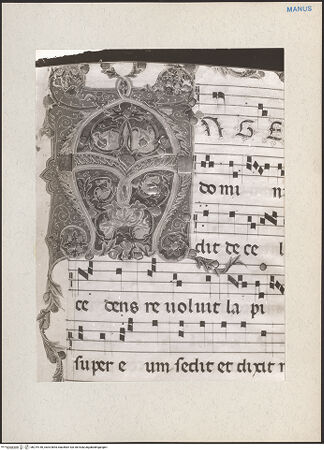 MANUS
A NGE
domi n
dit de ce l
ce dens re uoluit la pi
super e um sedit et dixit